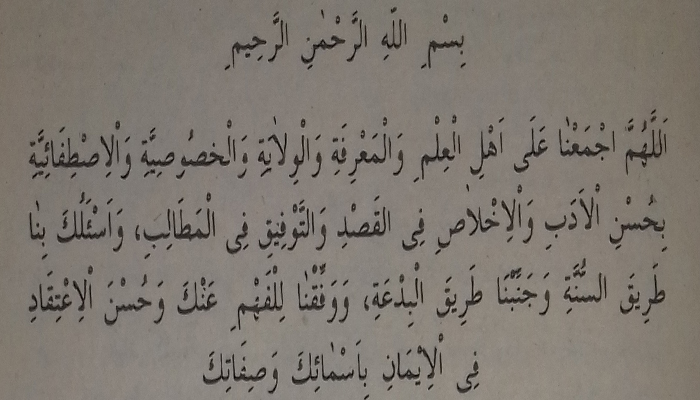 بِسْمِ اللّٰهِ الرَّحْمٰنِ الرَّحِيمِ
اَللَّهُمَّ اجْمَعْنَا عَلَى اَهْلِ الْعِلْمِ وَالْمَعْرِفَةِ وَالْوِلَايَةِ وَالْخصُوصِيَّةِ وَالْاِصْطِفَائِيَّةِ
بِحُسْنِ الْأَدَبِ وَالْاِخْلَاصِ فِى القَصْدِ وَالتَّوْفِيقِ فِى الْمَطَالِبِ، وَاَسْئَلُكَ بِنَا
طَرِيقَ السُّنَّةِ وَجَنَّبْنَا طَرِيقَ الْبِدْعَةِ، وَوَفِّقْنَا لِلْفَهْمِ عَنْكَ وَحُسْنَ الْاِعْتِقَادِ
فِى الْاِيْمَانِ بِاَسْمَائِكَ وَصِفَاتِكَ